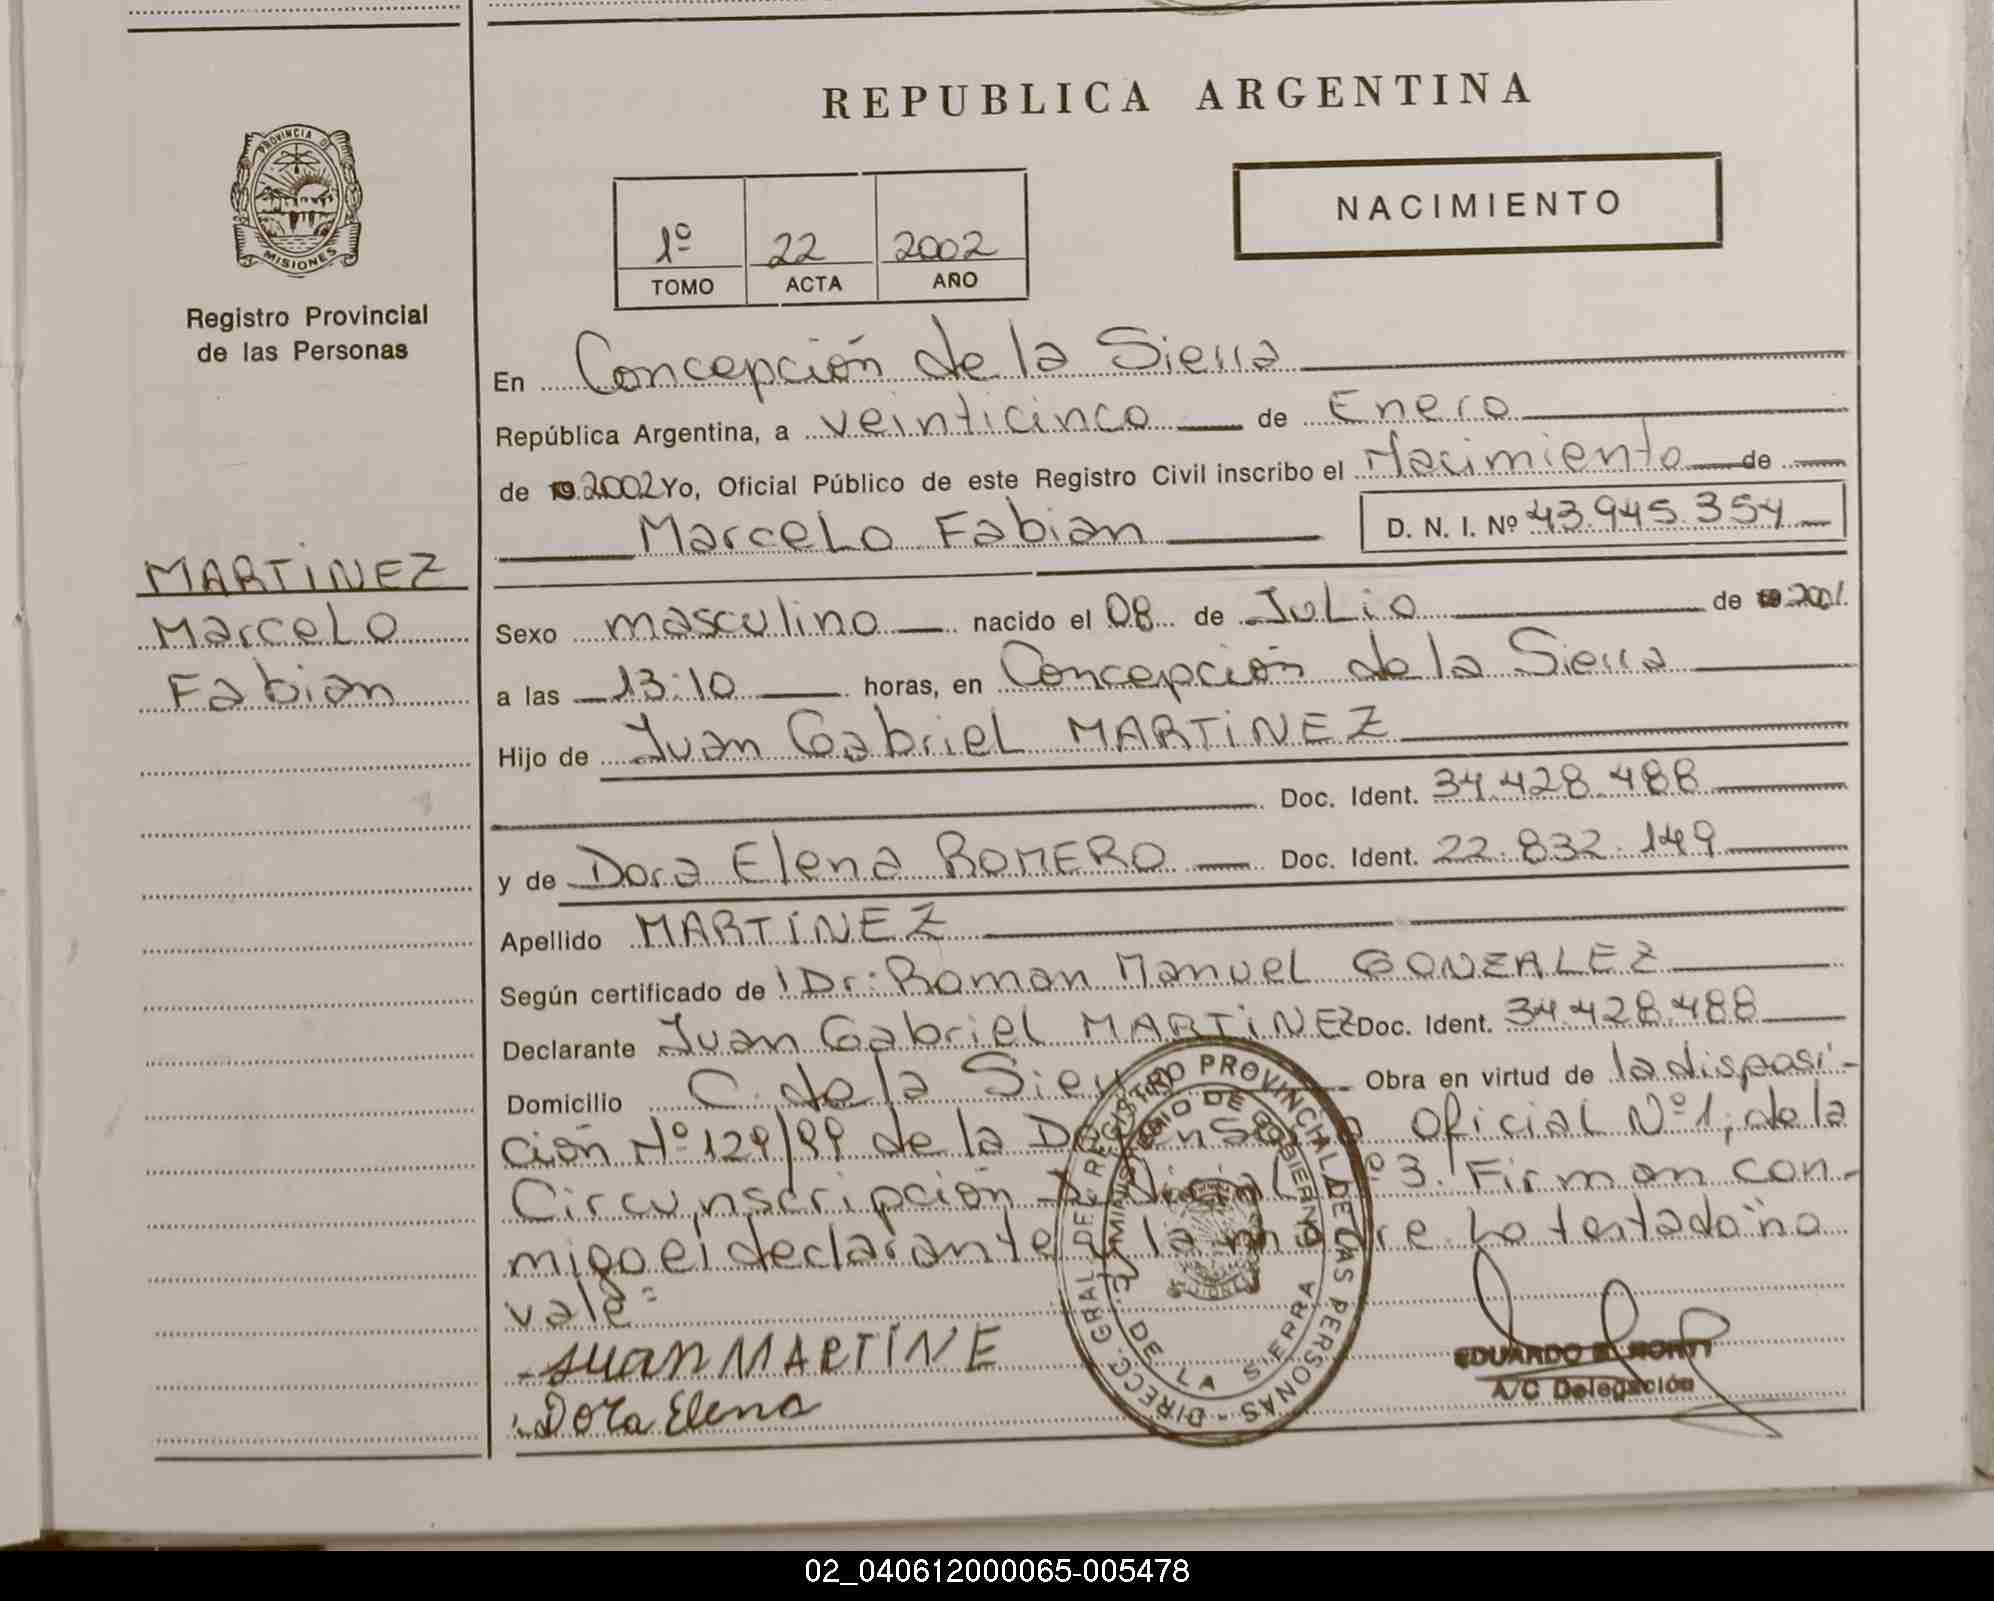 REPUBLICA ARGENTINA
PROVINCIA DE
MISIONES
Registro Provincial
de las Personas
NACIMIENTO
1º 22 2002
TOMO ACTA AÑO
En Concepción de la Sierra
República Argentina, a veinticinco de Enero
de 19 2002 Yo, Oficial Público de este Registro Civil inscribo el Nacimiento de
Marcelo Fabian D. N. I. Nº 43.945.354
MARTiNEZ
Marcelo
Fabian
Sexo masculino nacido el 08 de Julio de 19 2001.
a las 13:10 horas, en Concepción de la Sierra
Hijo de Juan Gabriel MARTiNEZ
Doc. Ident. 34.428.488
y de Dora Elena ROMERO Doc. Ident. 22.832.149
Apellido MARTÍNEZ
Según certificado de Dr: Roman Manuel GONZALEZ
Declarante Juan Gabriel MARTiNEZ Doc. Ident. 34.428.488
Domicilio C. de la Sierra Obra en virtud de la disposi-
ción Nº 129/99 de la Defensoria Oficial Nº 1, de la
Circunscripción Judicial Nº 3. Firman con-
migo el declarante y la madre. Lo testado "no
vale"
Juan MARTÍNE
Dora Elena
DIRECC. GRAL. DEL REGISTRO PROVINCIAL DE LAS PERSONAS -
MINISTERIO DE GOBIERNO
DE LA SIERRA
EDUARDO
A/C Delegación
02_040612000065-005478